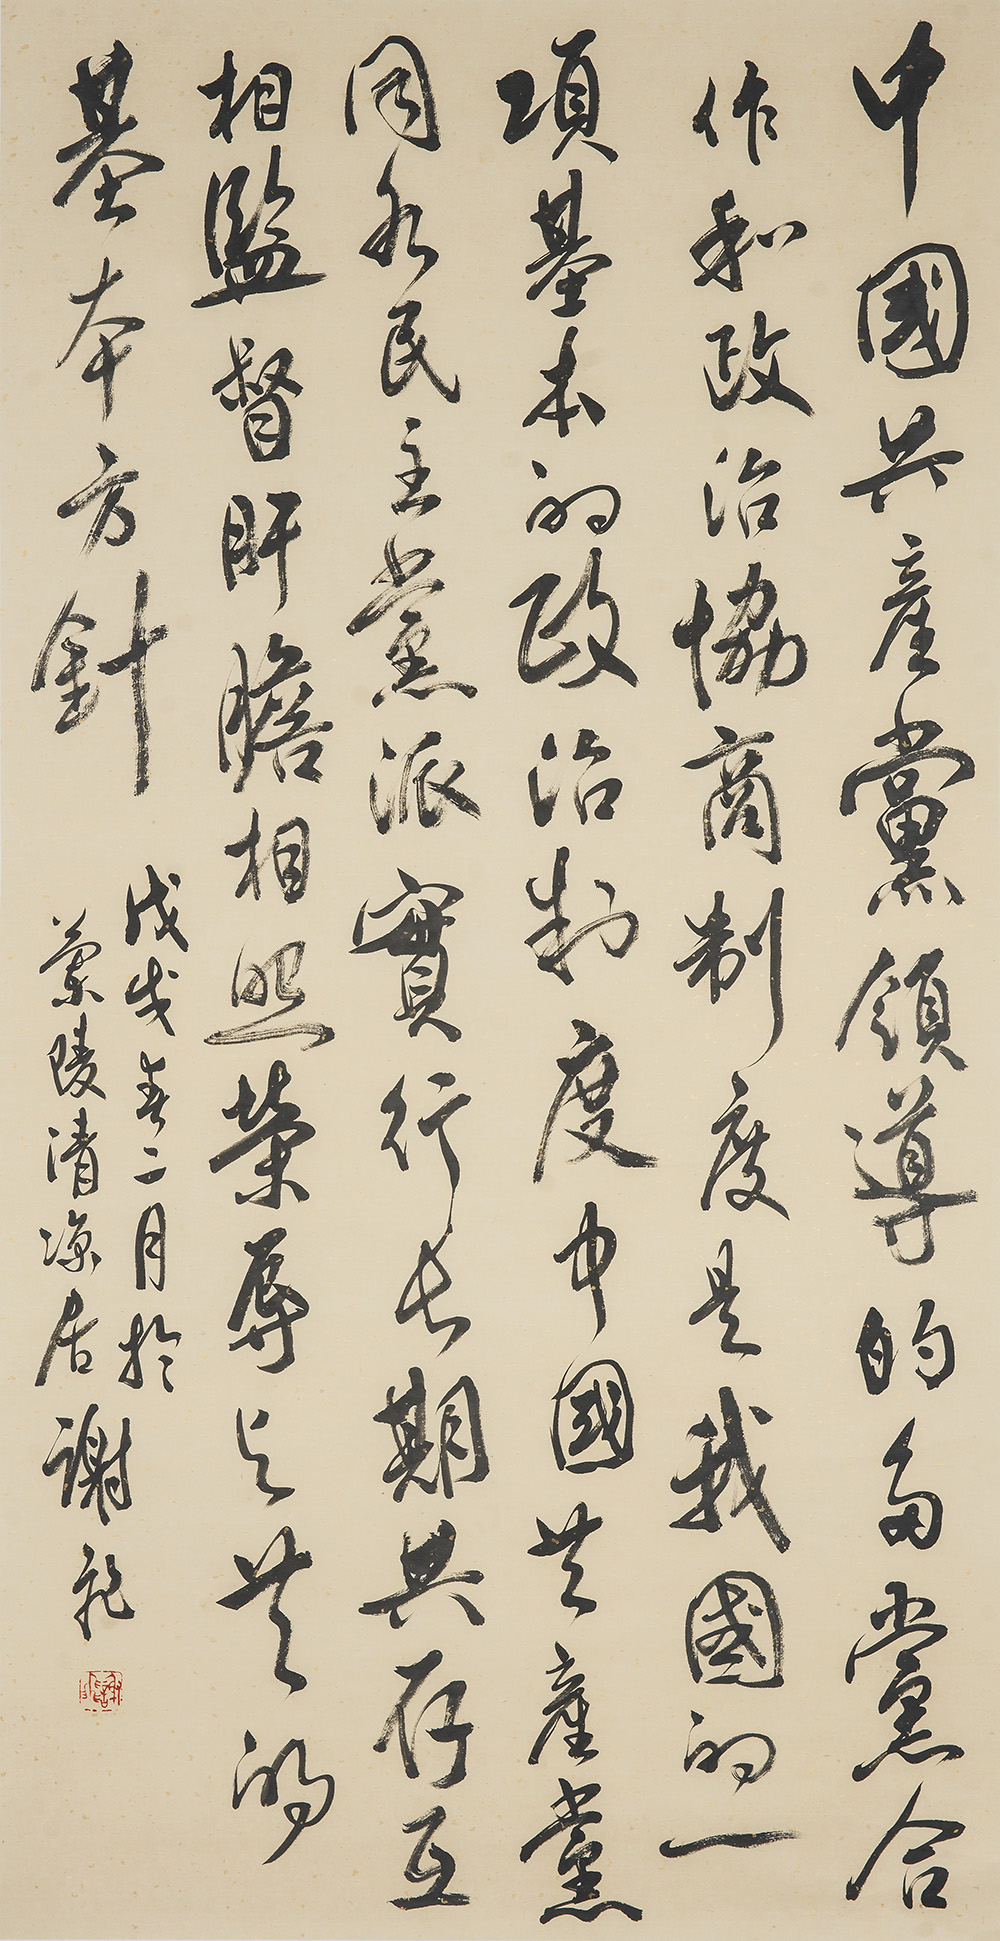 中國共產黨領導的多黨合
作和政治協商制度是我國的一
項基本的政治制度中國共產黨
同各民主黨派實行長期共存互
相監督肝膽相照榮辱與共的
基本方針
戊戌春二月於
蘭陵清涼居謝